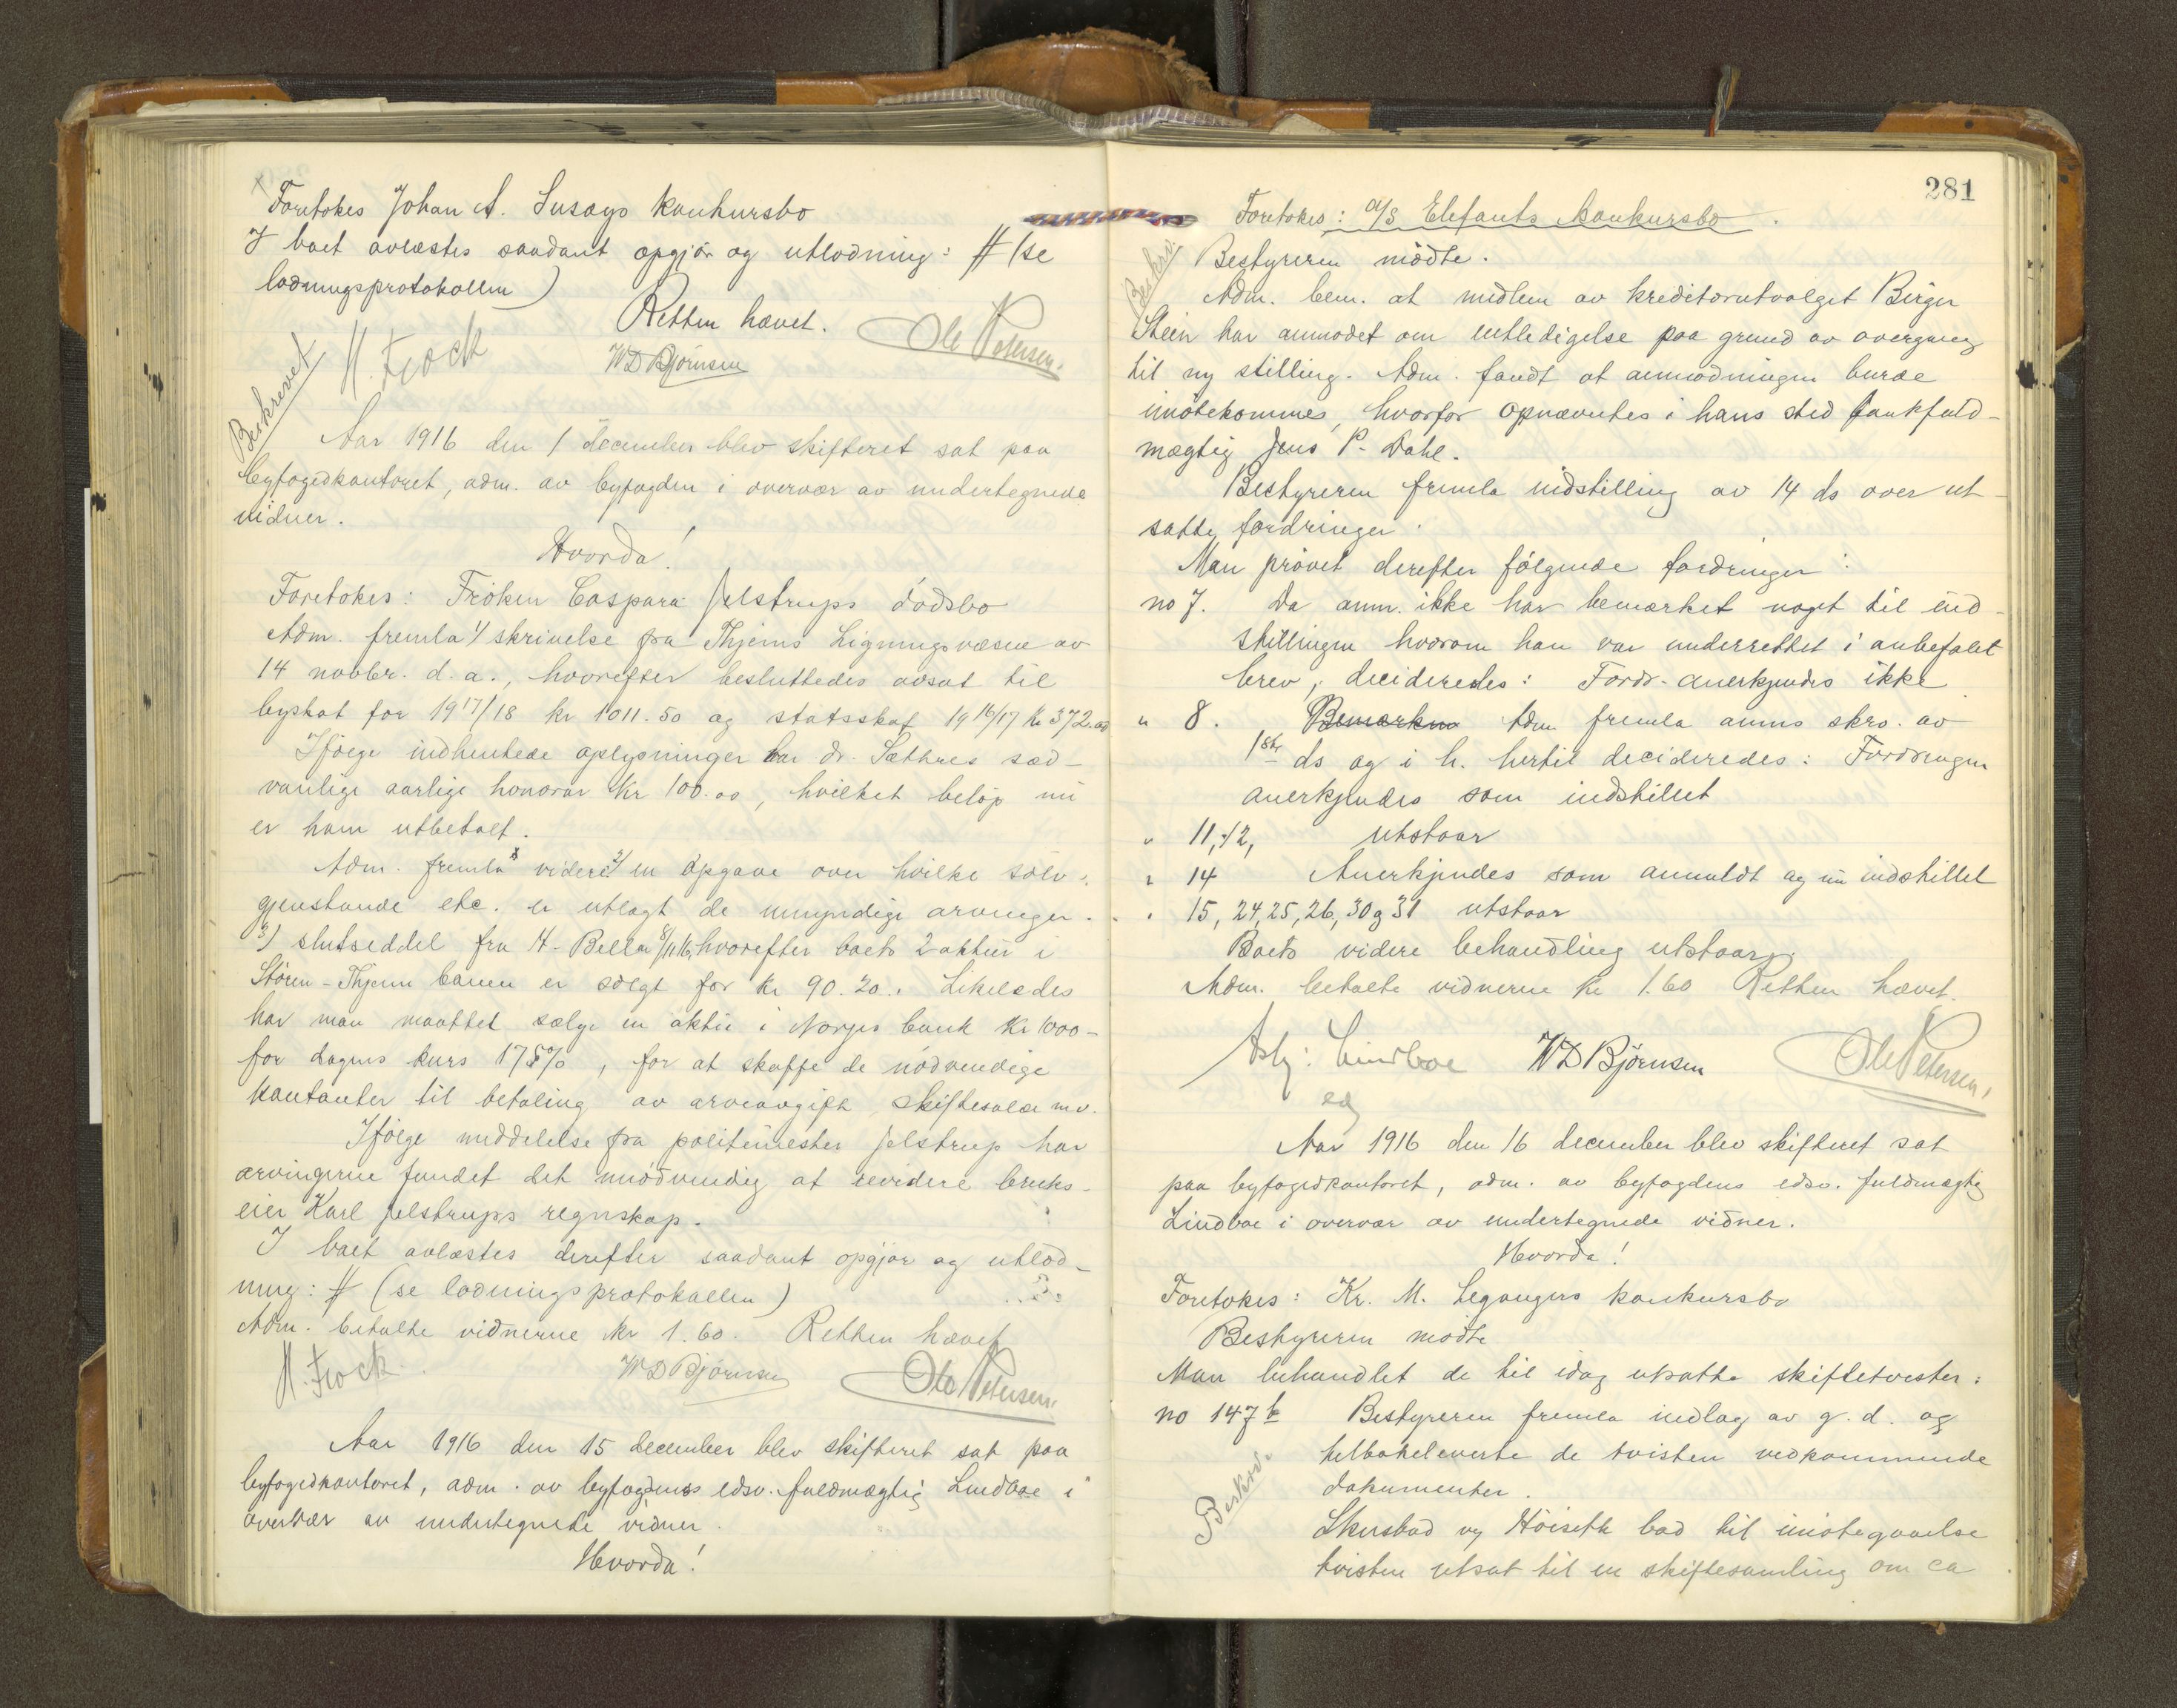 Foretokes Johan A. Susags konkursbo
I boet avlæstes saadant opgjør og utlodning: # (se
lodningsprotokollen)
Retten hævet.
H. Fock WD Bjørnsen Ole Petersen.
Beskrevet
Aar 1916 den 1 december blev skifteret sat paa
byfogedkontoret, adm. av byfogden i overvær av undertegnede
vidner.
Hvorda!
Foretokes: Frøken Caspara Jelstrups dødsbo
Adm. fremla 1/ skrivelse fra Thjems Ligningsvæsen av
14 novbr. d.a., hvorefter besluttedes avsat til
byskat for 1917/18 kr 1011.50 og statsskat 1916/17 kr 372.00
Ifølge indhentede oplysninger har dr. Sæthres sæd-
vanlige aarlige honorar kr 100.00, hvilket beløp nu
er ham utbetalt.
Adm. fremla videre 2/ en opgave over hvilke sølv-
gjenstande etc. er utlagt de umyndige arvinger.
3/ slutseddel fra H. Bella 8/11 16, hvorefter boets 2 aktier i
Støren-Thjem banen er solgt for kr 90.20. Likeledes
har man maattet sælge en aktie i Norges bank kr 1000-
for dagens kurs 175%, for at skaffe de nødvendige
kontanter til betaling av arveavgift, skiftesalær mv.
Ifølge meddelelse fra politimester Jelstrup har
arvingerne fundet det unødvendig at revidere bruks-
eier Karl Jelstrups regnskap.
I boet avlæstes derefter saadant opgjør og utlod-
ning: # (se lodningsprotokollen)
Adm. betalte vidnerne kr 1.60. Retten hævet
H. Fock WD Bjørnsen Ole Petersen
Aar 1916 den 15 december blev skifteret sat paa
byfogedkontoret, adm. av byfogdens edsv. fuldmægtig Lindboe i
overvær av undertegnede vidner.
Hvorda!
281
Foretokes: A/S Elefants konkursbo.
Beskrev.
Bestyreren mødte.
Adm. bem. at medlem av kreditorutvalget Birger
Stein har anmodet om entledigelse paa grund av overgang
til ny stilling. Adm. fandt at anmodningen burde
imøtekommes, hvorfor opnævntes i hans sted bankfuld-
mægtig Jens P. Dahl.
Bestyreren fremla indstilling av 14 ds over ut-
satte fordringer.
Man prøvet derefter følgende fordringer:
no 7. Da anm. ikke har bemærket noget til ind-
stillingen hvorom han var underrettet i anbefalet
brev, decideredes: Fordr. anerkjendes ikke
" 8. Bemærkn Adm fremla anms skrv. av
1ste ds og i h. hertil decideredes: Fordringen
anerkjendes som indstillet
" 11, 12, utstaar
" 14 Anerkjendes som anmeldt og nu indstillet
" 15, 24, 25, 26, 30 og 31 utstaar
Boets videre behandling utstaar.
Adm. betalte vidnerne kr 1.60 Retten hævet.
Asbj: Lindboe WD Bjørnsen Ole Petersen,
ed
Aar 1916 den 16 december blev skifteret sat
paa byfogedkontoret, adm. av byfogdens edsv. fuldmægtig
Lindboe i overvær av undertegnede vidner.
Hvorda!
Foretokes: Kr. M. Legangers konkursbo
Bestyreren mødte
Man behandlet de til idag utsatte skiftetvister:
no 147 b Bestyreren fremla indlæg av g.d. og
tilbakeleverte de tvisten vedkommende
dokumenter.
Beskrev.
Skersbad og Høiseth bad til imøtegaaelse
tvisten utsat til en skiftesamling om ca